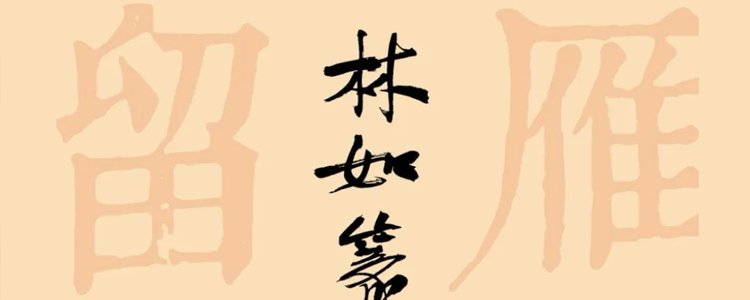 雁
林如
留